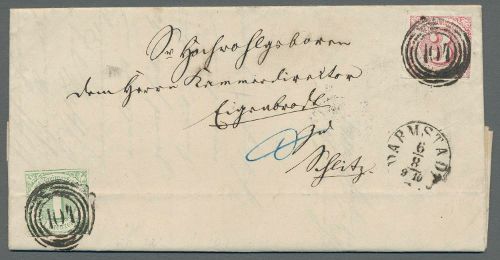 Sr Hochwohlgeboren
dem Herrn Kammerdirektor
Eigenbrodt
Zu
Schlitz.
104
3
DARMSTADT
6
8
9 10
104
1